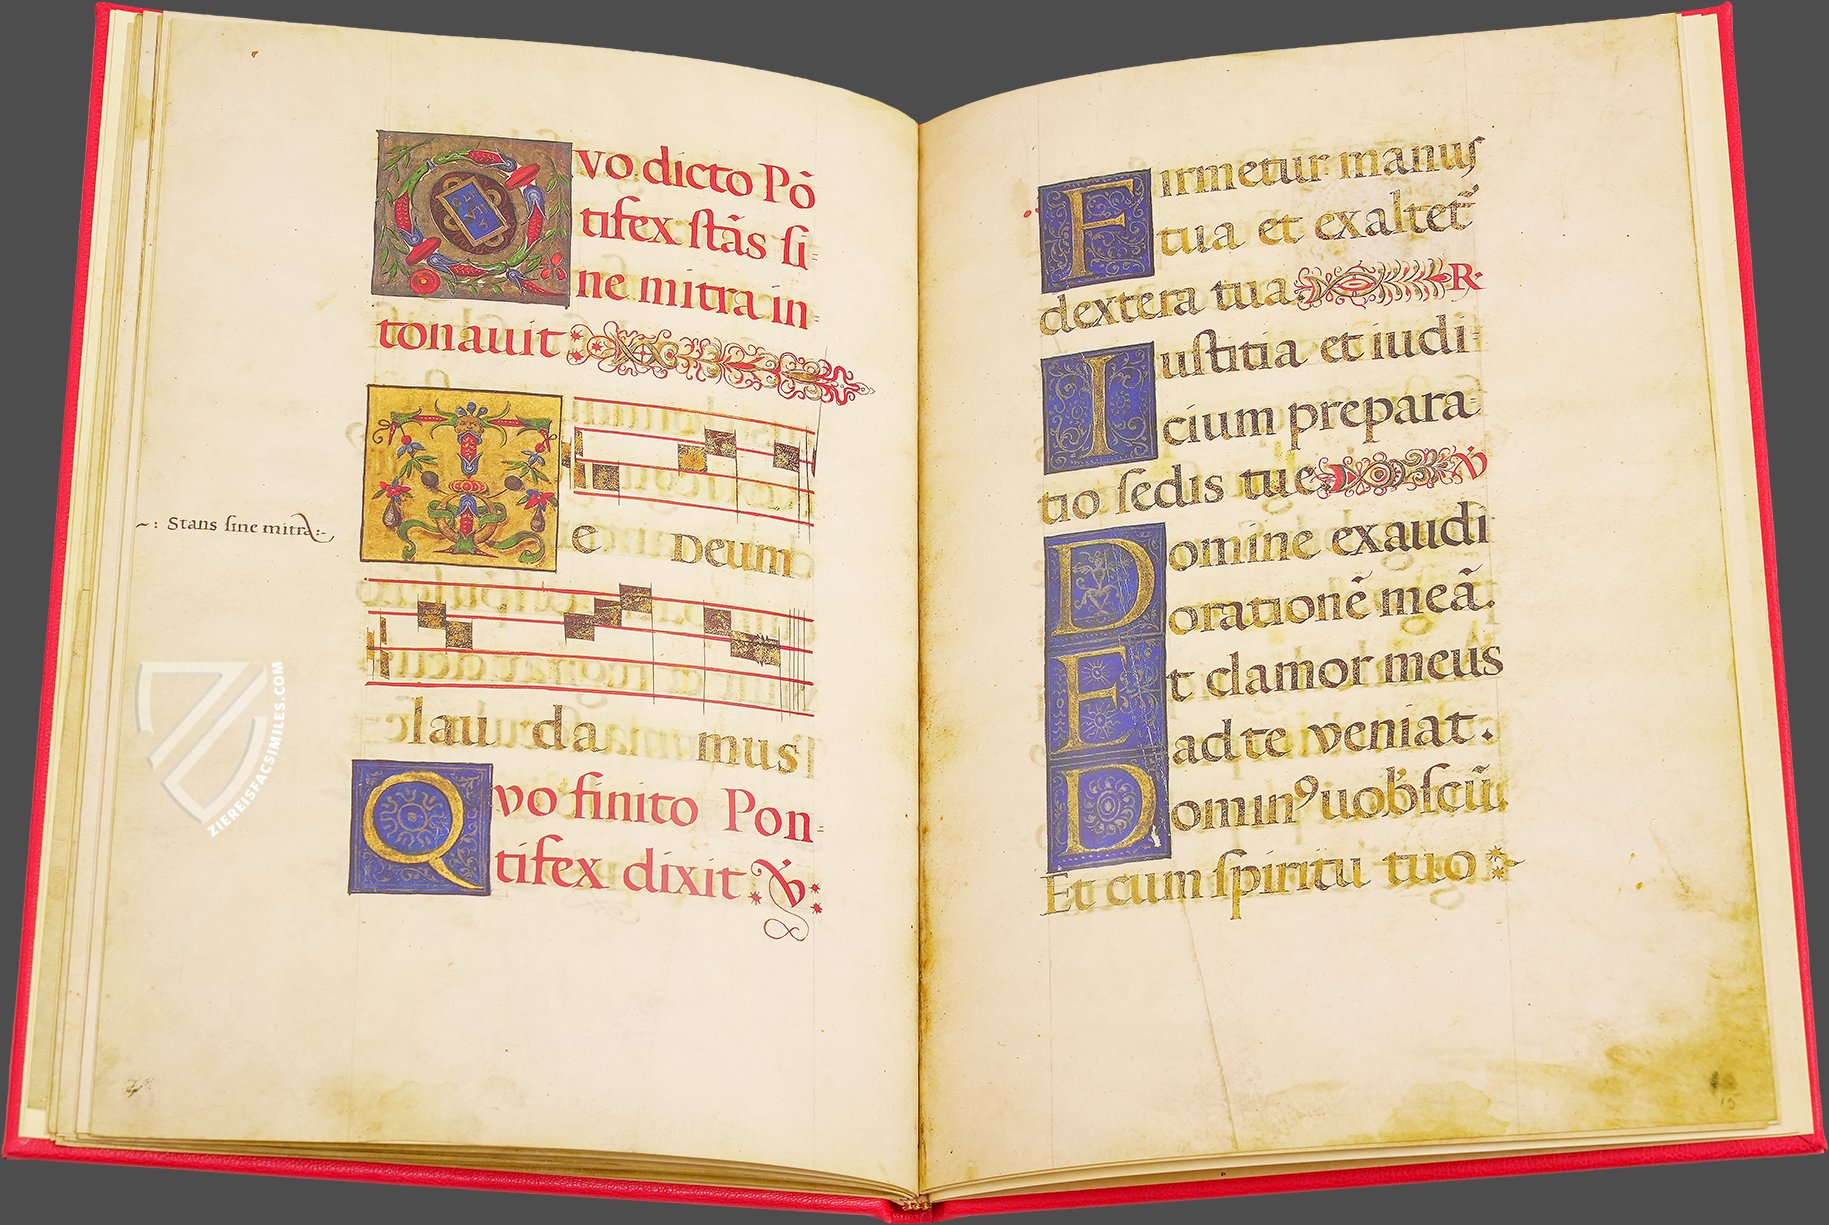 Qvo dicto Põ
tifex stãs si=
ne mitra in=
tonauit
Te Deum
~: Stans sine mitra:~
lau da mus
Qvo finito Pon=
tifex dixit: V̇:
Firmetur manus
tua et exaltet̃
dextera tua. R.
Iustitia et iudi=
cium prepara=
tio sedis tue. V̇
Domine exaudi
orationẽ meã.
Et clamor meus
ad te veniat.
Dominꝯ uob̕scũ.
Et cum spiritu tuo
15
ZIEREISFACSIMILES.COM